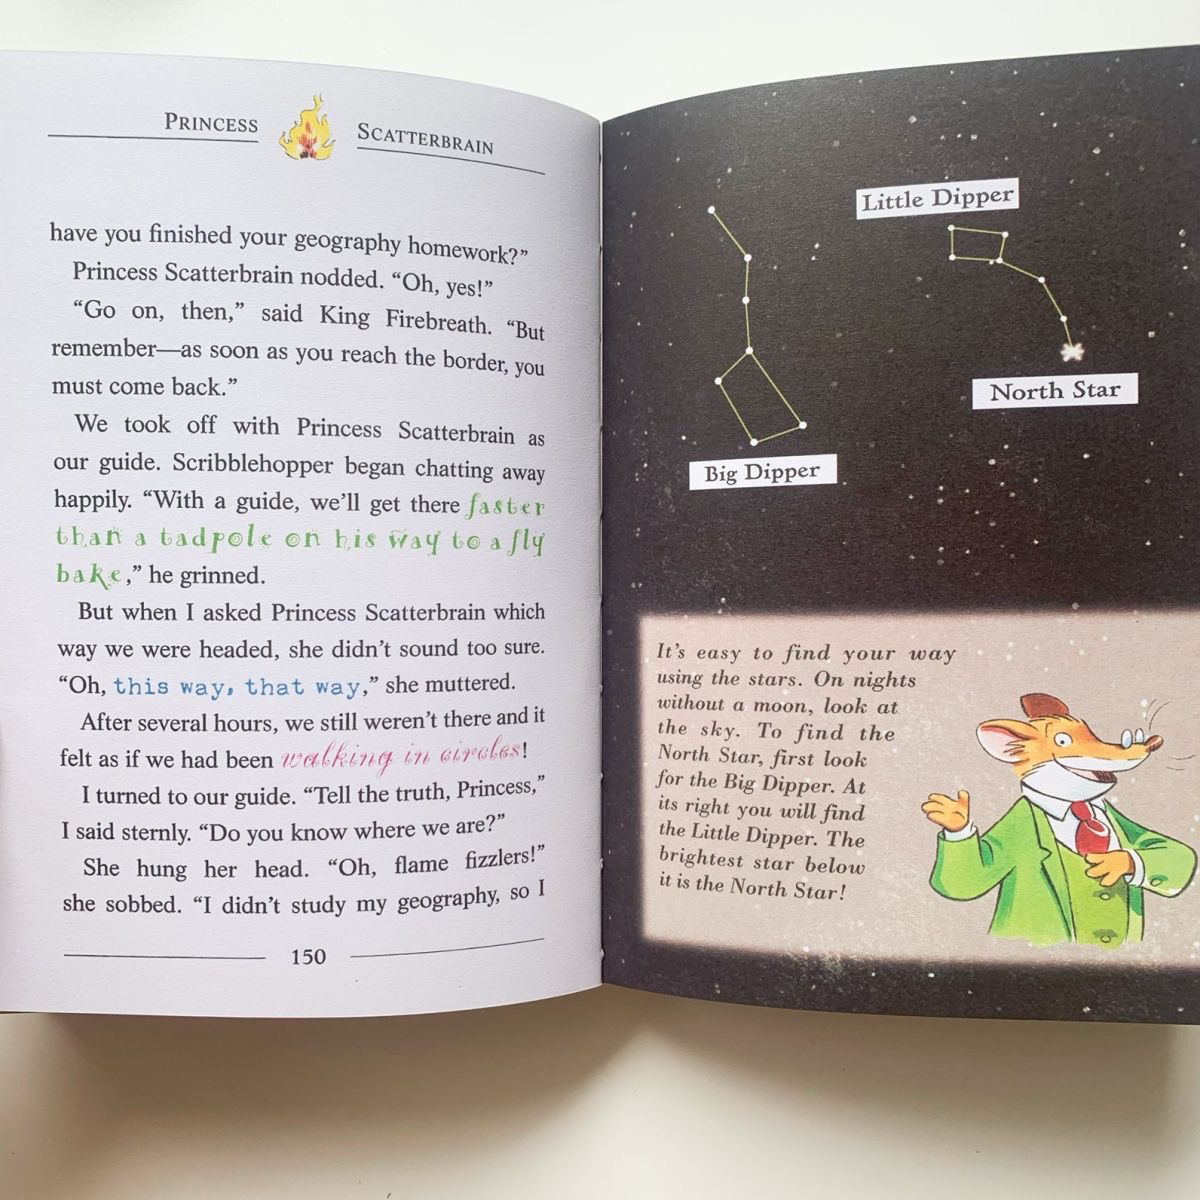 PRINCESS SCATTERBRAIN
have you finished your geography homework?”
Princess Scatterbrain nodded. “Oh, yes!”
“Go on, then,” said King Firebreath. “But
remember—as soon as you reach the border, you
must come back.”
We took off with Princess Scatterbrain as
our guide. Scribblehopper began chatting away
happily. “With a guide, we’ll get there faster
than a tadpole on his way to a fly
bake,” he grinned.
But when I asked Princess Scatterbrain which
way we were headed, she didn’t sound too sure.
“Oh, this way, that way,” she muttered.
After several hours, we still weren’t there and it
felt as if we had been walking in circles!
I turned to our guide. “Tell the truth, Princess,”
I said sternly. “Do you know where we are?”
She hung her head. “Oh, flame fizzlers!”
she sobbed. “I didn’t study my geography, so I
150
Little Dipper
North Star
Big Dipper
It’s easy to find your way
using the stars. On nights
without a moon, look at
the sky. To find the
North Star, first look
for the Big Dipper. At
its right you will find
the Little Dipper. The
brightest star below
it is the North Star!